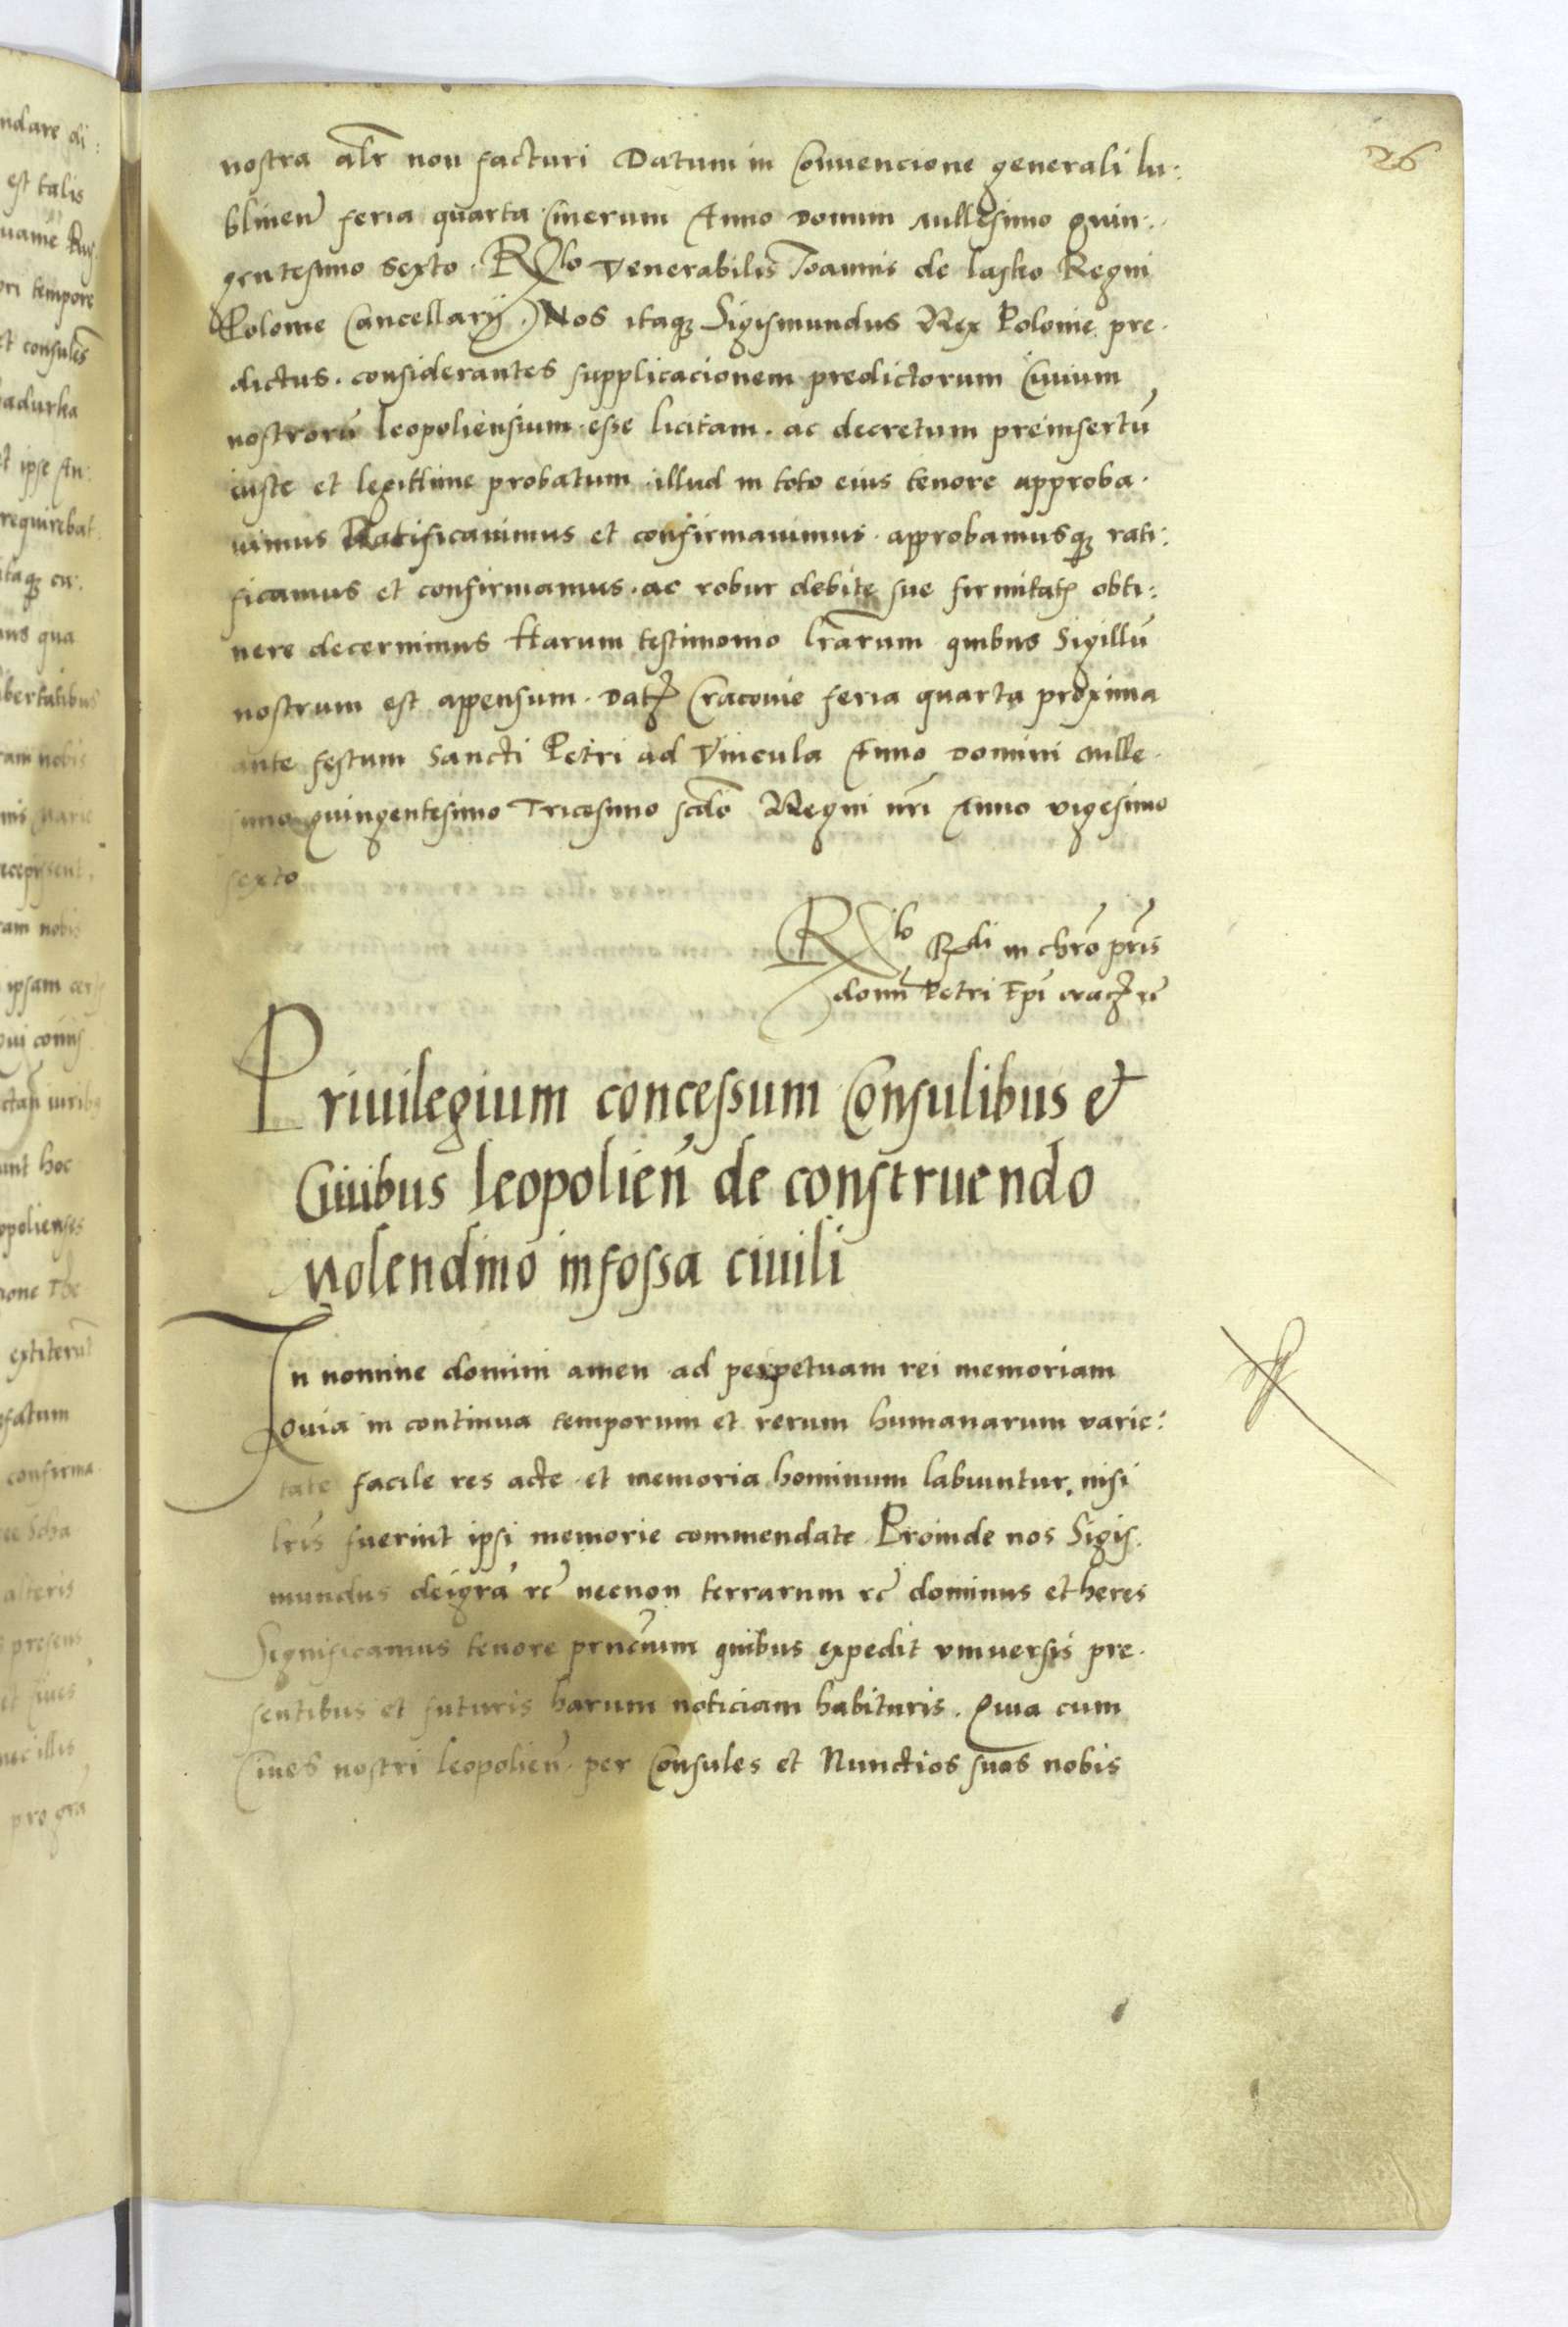 26
nostra alr̄ non facturi Datum in Convencione generali lu:
blinen̄ feria quarta Cinerum Anno domini millesimo quin:
gentesimo sexto. Rlo Venerabilis Ioannis de lasko Regni
Polonie Cancellarij. Nos itaqȝ Sigismundus Rex Polonie pre.
dictus. considerantes supplicacionem predictorum Ciuium
nostrorū leopoliensium. esse licitam. ac decretum preinsertū
iuste et legittime probatum. illud in toto eius tenore approba.
uimus Ratificauimus et confirmauimus. approbamusqȝ rati:
ficamus et confirmamus. ac robur debite sue firmitatꝭ obti:
nere decernimus Harum testimonio lr̄arum quibus Sigillū
nostrum est appensum. Datꝭ Cracouie feria quarta proxima
ante festum Sancti Petri ad Vincula Anno domini mille.
simo quingentesimo Tricesimo scdo Regni nr̄i Anno vigesimo
sexto
Rlo Rdi in chr̄o pr̄is
domī Petri Ep̄i cracꝭ rc̄
Priuilegium concessum Consulibus et
Ciuibus leopolien̄ de construendo
Molendino in fossa ciuili
In nomine domini amen ad perpetuam rei memoriam
Quia in continua temporum et rerum humanarum varie:
tate facile res acte et memoria hominum labuntur, nisi
lr̄is fuerint ipsi memorie commendate Proinde nos Sigis.
mundus dei gr̄a rc̄ necnon terrarum rc̄ dominus et heres
Significamus tenore prn̄cium quibus expedit vniuersis pre.
sentibus et futuris harum noticiam habituris. Quia cum
Ciues nostri leopolien̄. per Consules et Nunctios suos nobis